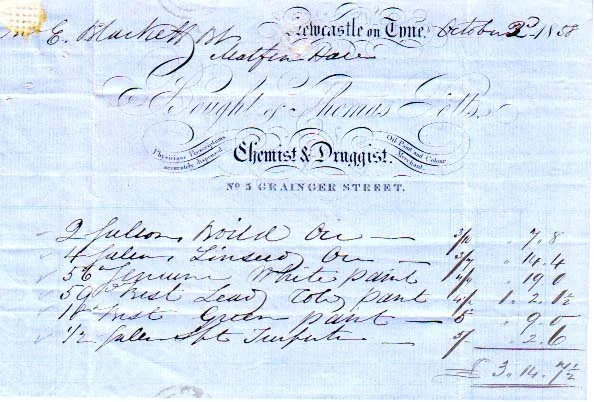 E. Blackett Bt Newcastle on Tyne, October 2d 1858
Matfen
Bought of Thomas
Physicians Prescriptions accurately dispensed. Chemist & Druggist. Oil Paint and Colour Merchant.
No 5 GRAINGER STREET.
2 Gallons Boild Oil — 3/10 " 7. 8
4 Gallns Linseed Oil — 3/7 " 14. 4
56 Genuine White paint " 19 0
59 Best Lead Cold paint 1. 2. 1½
Best Green paint — " 9. 0
1/2 Gallon Spt Turpentine — 5/ " 2. 6
£ 3. 14. 7½